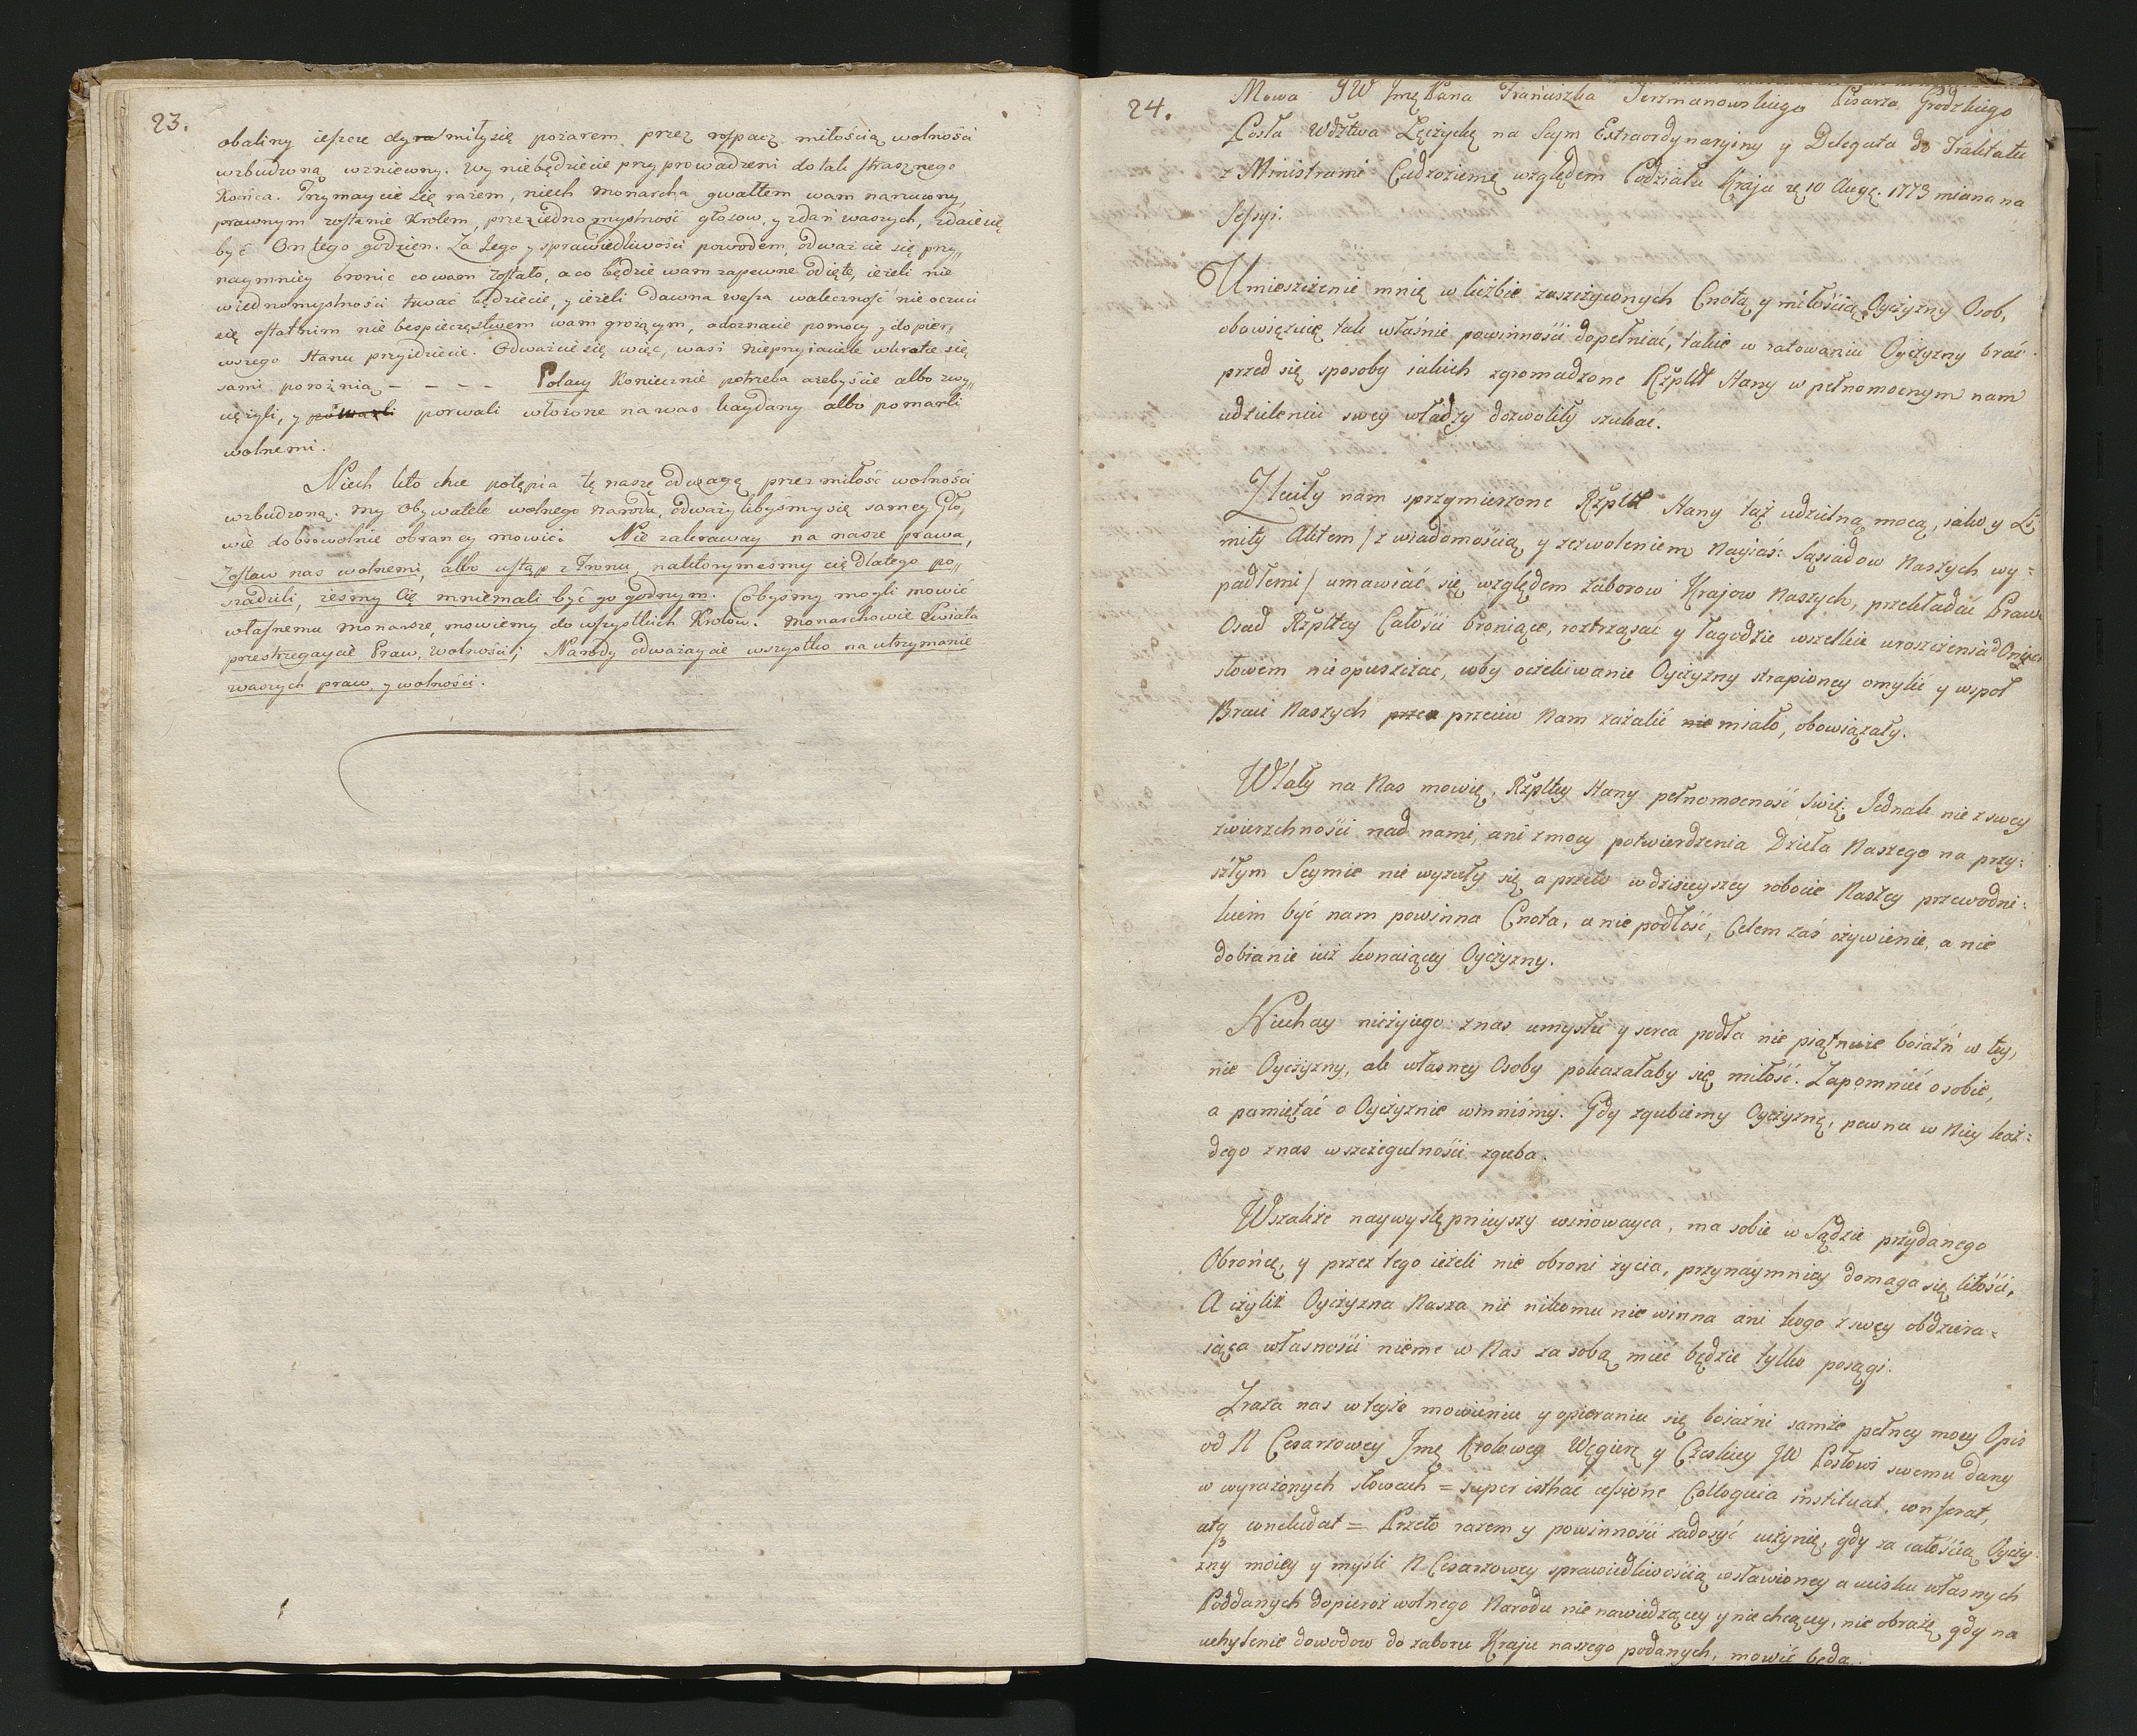 23.
obaliny ieszcze dymiły się pożarem przez rospacz miłością wolności
wzbudzoną wzniecony. Wy niebędziecie przyprowadzeni do tak strasznego
Końca. Trzymaycie się razem, niech Monarcha gwałtem wam narzucony,
prawnym zostanie Krolem, przez iednomyslność głosow, y zdań waszych, zdaie się
być On tego godzien. Za Jego y sprawiedliwości powodem, odważcie się przy„
naymniey bronic co wam zostało, a co będzie wam zapewne odięte, ieżeli nie
w iednomyslności trwać będziecie, y ieżeli dawna wasza waleczność nie ocuci
się ostatnim niebespieczęstwem wam grożącym, a doznacie pomocy y do pier„
wszego Stanu przyidziecie. Odważcie się więc, wasi niepryiaciele wkrotce się
sami porożnią – – – – Polacy Koniecznie potrzeba ażebyście albo zwy„
cięzyli, y porwali włożone na was kaydany albo pomarli
wolnemi.
Niech kto chce potępia tę naszę odwagę przez miłość wolności
wzbudzoną. My Obywatele wolnego Narodu, odważylibyśmy się samey Gło„
wie dobrowolnie obraney mowić: Nie zakraway na nasze prawa,
Zostaw nas wolnemi, albo ustąp z Tronu, naktorymeśmy cię dlatego po„
sadzili, żesmy Cię mniemali być go godnym. Cobyśmy mogli mowić
własnemu Monarsze, mowiemy do wszystkich Krolow. Monarchowie Swiata
przestrzegaycie Praw, Wolności; Narody odważaycie wszystko na utrzymanie
waszych praw, y wolności.
24.
Mowa JW Jmę Pana Franciszka Jerzmanowskiego Pisarza Grodzkiego
Posła Wdztwa Łęczyckę na Seym Extraordynaryiny y Delegata do Traktatu
z Ministrami Cudzoziemę względem Podziału Kraju ię 10 Augę. 1773 miana na
Sessyi.
Umieszczenie mnię w liczbie zaszczyconych Cnotą y miłością Oyczyzny Osob,
obowięzuię tak właśnie powinności dopełniać, takie w ratowaniu Oyczyzny brać
przed się sposoby iakich zgromadzone Rzpltt Stany w pełnomocnym nam
udzieleniu swey władzy dozwoliły szukać.
Zleciły nam sprzymierzone Rzpltt Stany taż udzielną mocą, iako y Li„
mity Aktem / z wiadomością y zezwoleniem Nayiaś: Sąsiadow Naszych wy=
padłemi / umawiać się względem zaborow Krajow Naszych, przekładać Prawa
Osad Rzpltey Całości broniące, roztrząsać y łagodzić wszelkie uroszczenia
słowem nieopuszczać, coby oczekiwanie Oyczyzny strapioney omylić y wspoł
Braci Naszych przeciw Nam zażalić miało, obowiązały.
Wlały na Nas mowię, Rzpltey Stany pełnomocność Swię. Jednak nie z swey
zwierzchności nad nami, ani z mocy potwierdzenia Dzieła Naszego na przy=
szłym Seymie nie wyzuły się a przeto w dzisieyszey robocie Naszey przewodni=
kiem być nam powinna Cnota, a nie podłość, Celem zaś ożywienie, a nie
dobianie iuż konaiącey Oyczyzny.
Niechay niczyiego z nas umysłu y serca podła nie piątnuie boiaźń w tey,
nie Oyczyzny, ale własney Osoby pokazałaby się miłość. Zapomnieć o sobie,
a pamiętać o Oyczyznie winniśmy. Gdy zgubiemy Oyczyznę, pewna w Niey każ=
dego z nas wszczegulności zguba.
Wszakże naywystępnieyszy winowayca, ma sobie w Sądzie przydanego
Obrońcę, y przez tego ieżeli nie obroni życia, przynaymniey domaga się litości,
A czyliż Oyczyzna Nasza nic nikomu nie winna ani kogo z swey obdziera=
iąca własności nieme w Nas za sobą mieć będzie tylko posągi.
Zraża nas w teyże mowieniu y opieraniu się boiaźni samże pełney mocy Opis
od N Cesarzowey Jmę Krolowey Węgierę y Czeskiey JW Posłowi swemu dany
w wyrażonych słowach = super isthac cessione Colloquia instituat, conferat,
atq concludat = Przeto razem y powinności zadosyć uczynię, gdy za całością Oyczy
zny moiey y myśli N Cesarzowey sprawiedliwością wsławioney a ucisku własnych
Poddanych dopieroż wolnego Narodu nienawidzącey y niechcącey, nie obrażę, gdy na
uchylenie dowodow do zaboru Kraju naszego podanych, mowić będę.